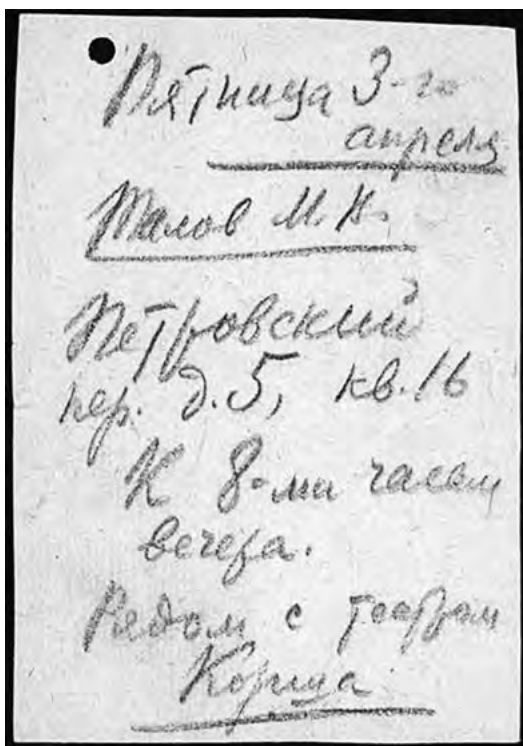 Пятница 3-го
апреля
Талов М. В.
Петровский
пер. д. 5, кв. 16
К 8-ми часам
вечера.
Рядом с театром
Корша